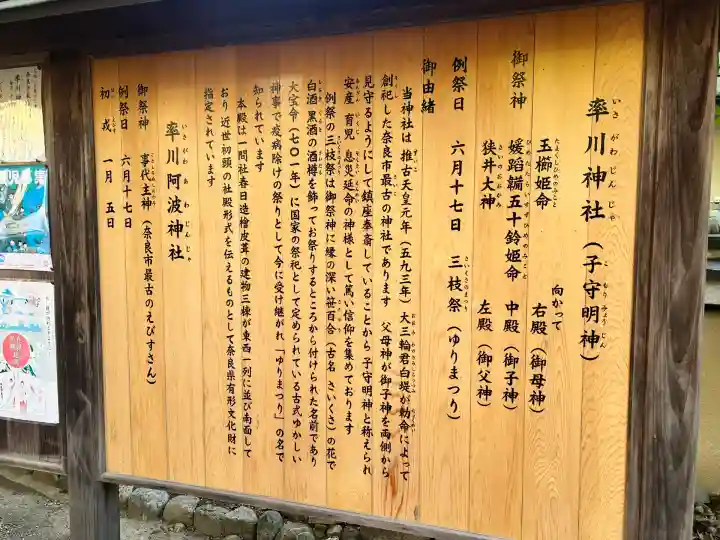 率川神社（子守明神）
いさがわじんじゃ
こもりみょうじん
御祭神
玉櫛姫命
たまくしひめのみこと
向かって
右殿（御母神）
媛蹈韛五十鈴姫命
ひめたたらいすずひめのみこと
中殿（御子神）
狭井大神
さいのおおかみ
左殿（御父神）
例祭日　六月十七日　三枝祭（ゆりまつり）
さいくさのまつり
御由緒
当神社は 推古天皇元年（五九三年）大三輪君白堤が勅命によって
創祀した奈良市最古の神社であります　父母神が御子神を両側から
見守るようにして鎮座奉斎していることから 子守明神と称えられ
安産 育児 息災延命の神様として篤い信仰を集めております
例祭の三枝祭は御祭神に縁の深い笹百合（古名 さいくさ）の花で
白酒 黒酒の酒樽を飾ってお祭りするところから付けられた名前であり
大宝令（七〇一年）に国家の祭祀として定められている古式ゆかしい
神事で疫病除けの祭りとして今に受け継がれ「ゆりまつり」の名で
知られています
本殿は一間社春日造檜皮葺の建物三棟が東西一列に並び南面して
おり 近世初頭の社殿形式を伝えるものとして奈良県有形文化財に
指定されています
率川阿波神社
いさがわあわじんじゃ
御祭神　事代主神（奈良市最古のえびすさん）
例祭日　六月十七日
初戎　一月　五日